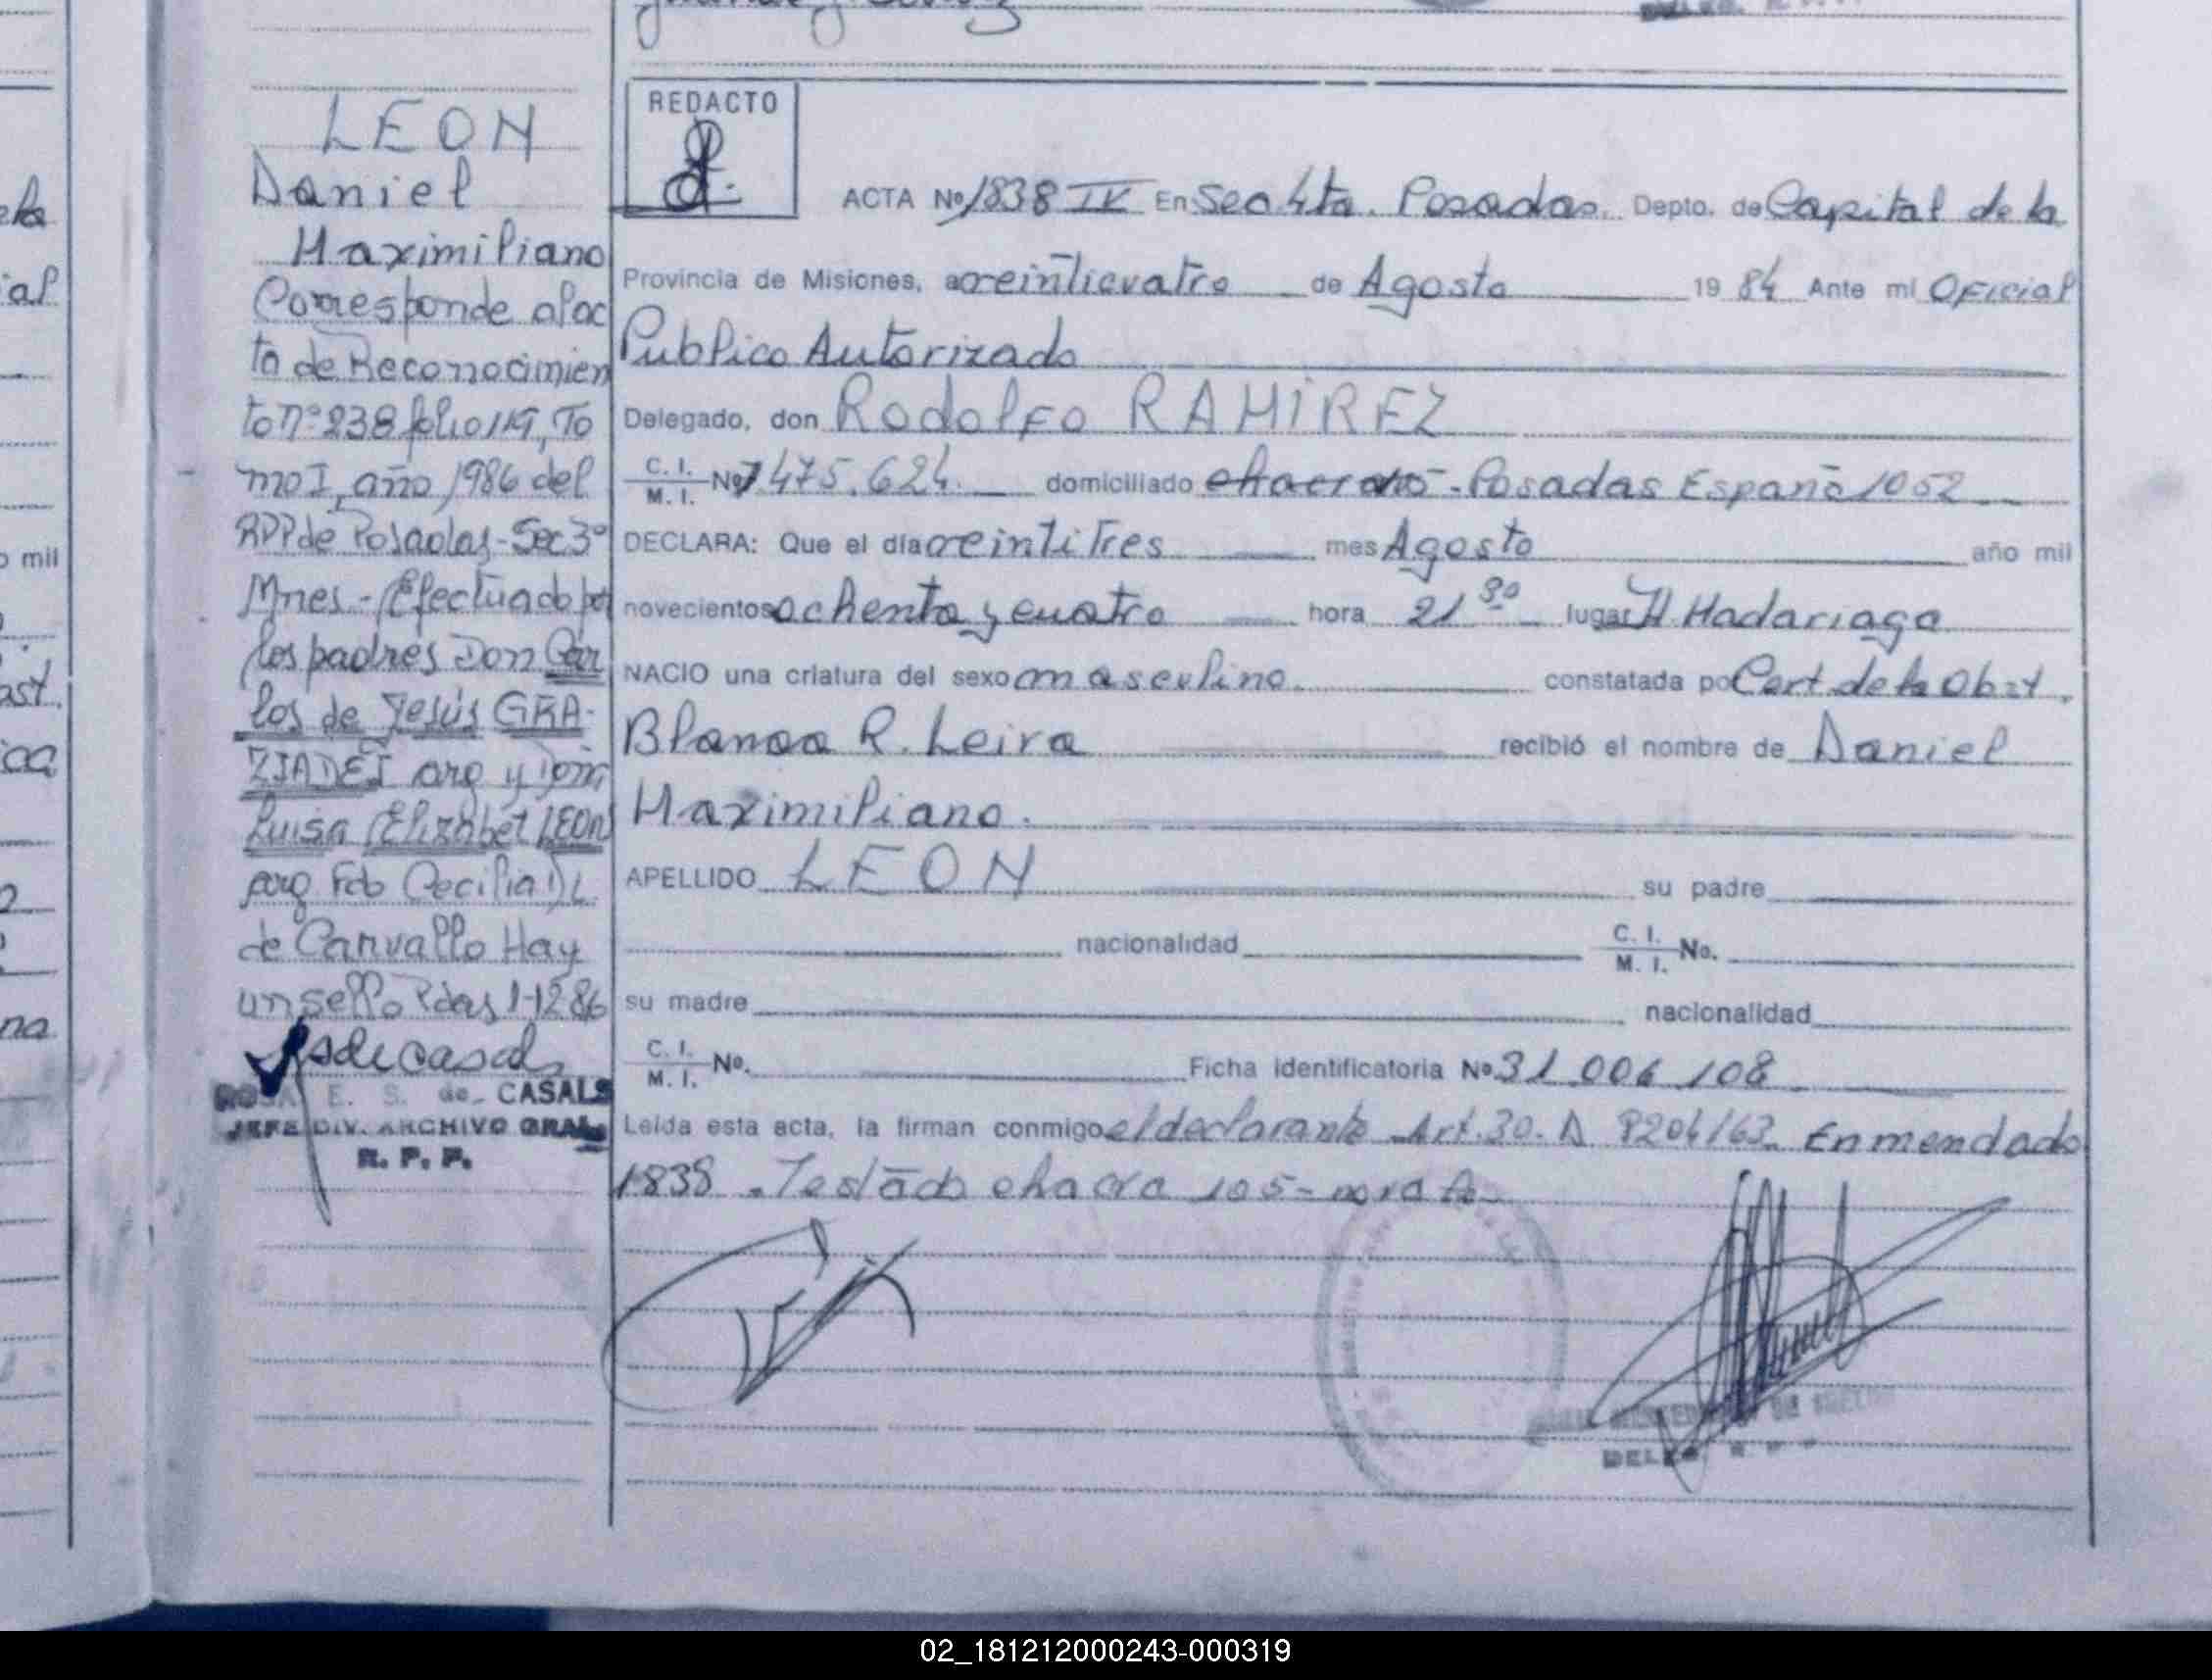 LEON
Daniel
Maximiliano
Corresponde al ac
ta de Reconocimien
to nº 238 folio 119, To
mo I, año 1986 del
RPP de Posadas - Sec 3º
Mnes - Efectuado por
los padres Don Car
los de Jesús GRA-
ZIADEI arg y Doña
Luisa Elizabet LEON
arg Fdo Cecilia D L
de Carvallo Hay
un sello Pdas 1-12 86
ROSA E. S. de CASALS
JEFE DIV. ARCHIVO GRAL.
R. P. P.
REDACTO
ACTA Nº 1838 IV En Sec 4ta. Posadas. Depto. de Capital de la
Provincia de Misiones, a veinticuatro de Agosto 19 84 Ante mi Oficial
Publico Autorizado
Delegado, don Rodolfo RAMIREZ
C. I. M. I. Nº 7.475.624. domiciliado - Posadas España 1052
DECLARA: Que el día veintitres mes Agosto año mil
novecientos ochenta y cuatro hora 21 30 lugar H. Madariaga
NACIO una criatura del sexo masculino. constatada por Cert. de la Obst.
Blanca R. Leiva recibió el nombre de Daniel
Maximiliano.
APELLIDO LEON su padre
nacionalidad C. I. M. I. No.
su madre nacionalidad
C. I. M. I. No. Ficha identificatoria Nº 31.006.108
Leida esta acta, la firman conmigo el declarante Art. 30. D 8204/63. Enmendado
1838. Testado chacra 105 -
DELEG. R. P. P.
02_181212000243-000319